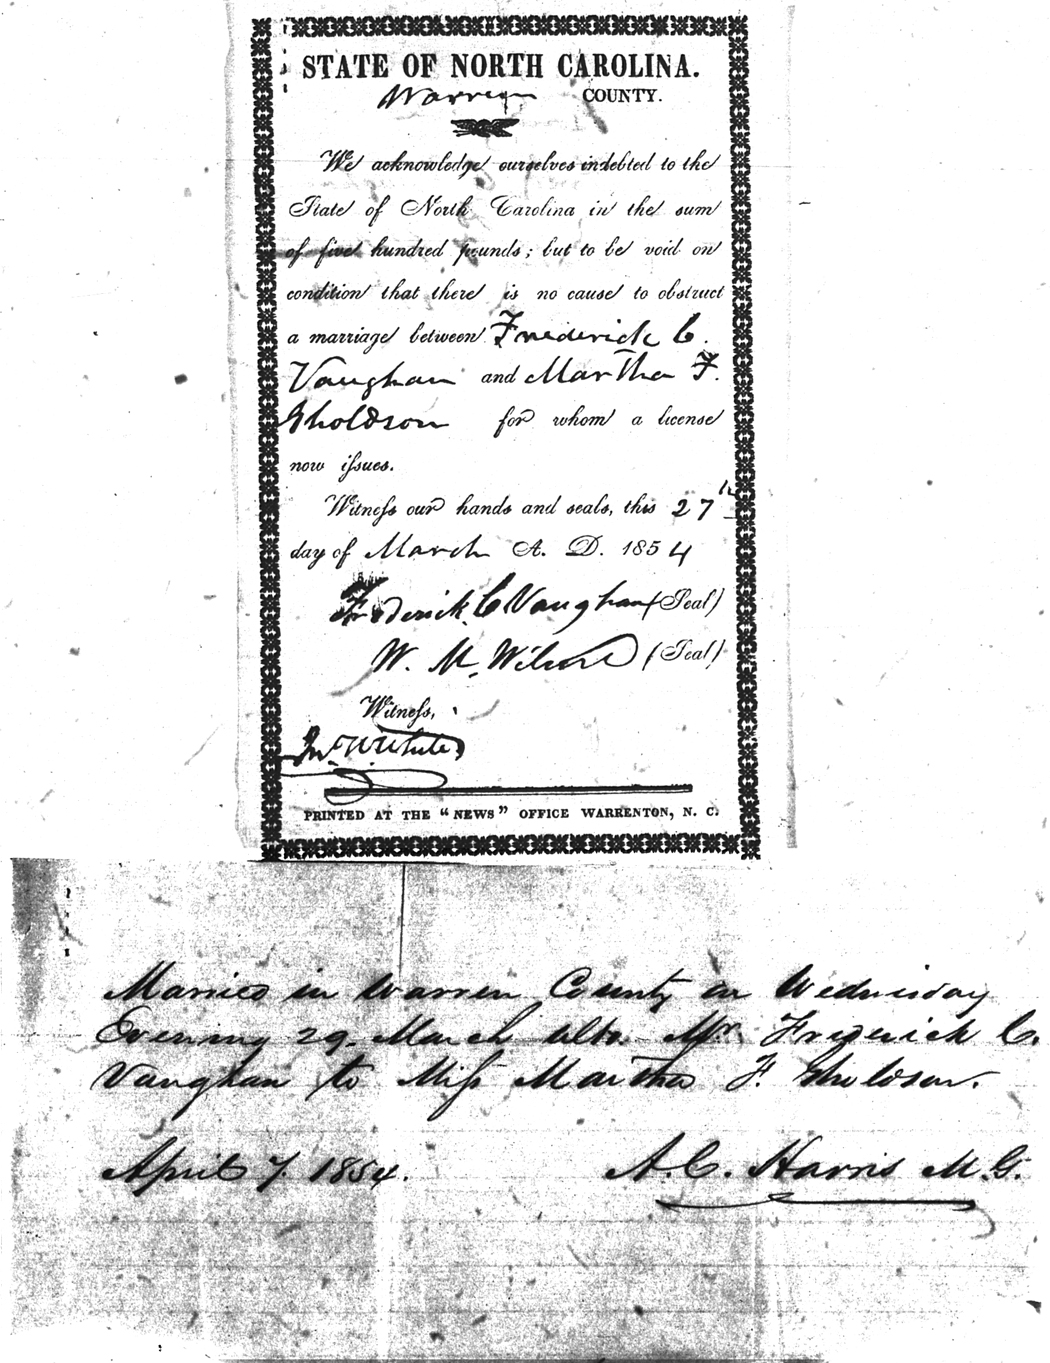 STATE OF NORTH CAROLINA.
Warren COUNTY.
We acknowledge ourselves indebted to the
State of North Carolina in the sum
of five hundred pounds; but to be void on
condition that there is no cause to obstruct
a marriage between Frederick C.
Vaughan and Martha F.
Sholdson for whom a license
now issues.
Witness our hands and seals, this 27th
day of March A. D. 1854
Frederick C Vaughan (Seal)
W. M. Wilson (Seal)
Witness,
Jno. W. White
PRINTED AT THE "NEWS" OFFICE WARRENTON, N. C.
Married in Warren County on Wednesday
Evening 29. March ulto. Mr. Frederick C.
Vaughan to Miss Martha F. Sholdson.
April 7. 1854. A. C. Harris M. G.